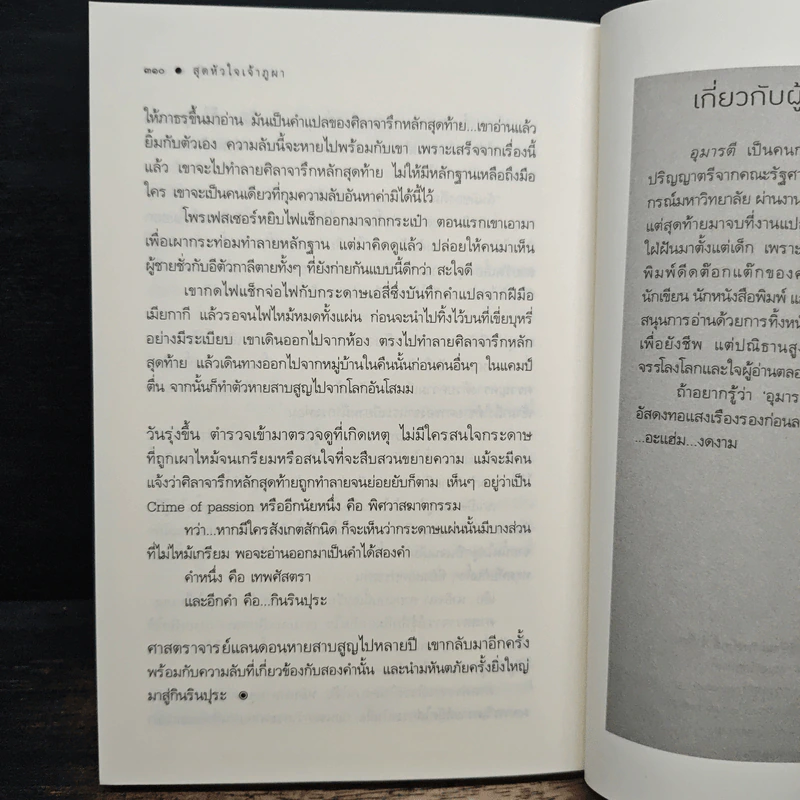 ๓๑๐ ● สุดหัวใจเจ้าภูผา
ให้ภาธรขึ้นมาอ่าน มันเป็นคำแปลของศิลาจารึกหลักสุดท้าย...เขาอ่านแล้ว
ยิ้มกับตัวเอง ความลับนี้จะหายไปพร้อมกับเขา เพราะเสร็จจากเรื่องนี้
แล้ว เขาจะไปทำลายศิลาจารึกหลักสุดท้าย ไม่ให้มีหลักฐานเหลือถึงมือ
ใคร เขาจะเป็นคนเดียวที่กุมความลับอันหาค่ามิได้นี้ไว้
โพรเฟสเซอร์หยิบไฟแช็กออกมาจากกระเป๋า ตอนแรกเขาเอามา
เพื่อเผากระท่อมทำลายหลักฐาน แต่มาคิดดูแล้ว ปล่อยให้คนมาเห็น
ผู้ชายชั่วกับอีตัวกาลีตายทั้งๆ ที่ยังก่ายกันแบบนี้ดีกว่า สะใจดี
เขากดไฟแช็กจ่อไฟกับกระดาษเอสี่ซึ่งบันทึกคำแปลจากฝีมือ
เมียกากี แล้วรอจนไฟไหม้หมดทั้งแผ่น ก่อนจะนำไปทิ้งไว้บนที่เขี่ยบุหรี่
อย่างมีระเบียบ เขาเดินออกไปจากห้อง ตรงไปทำลายศิลาจารึกหลัก
สุดท้าย แล้วเดินทางออกไปจากหมู่บ้านในคืนนั้นก่อนคนอื่นๆ ในแคมป์
ตื่น จากนั้นก็ทำตัวหายสาบสูญไปจากโลกอันโสมม
วันรุ่งขึ้น ตำรวจเข้ามาตรวจดูที่เกิดเหตุ ไม่มีใครสนใจกระดาษ
ที่ถูกเผาไหม้จนเกรียมหรือสนใจที่จะสืบสวนขยายความ แม้จะมีคน
แจ้งว่าศิลาจารึกหลักสุดท้ายถูกทำลายจนย่อยยับก็ตาม เห็นๆ อยู่ว่าเป็น
Crime of passion หรืออีกนัยหนึ่ง คือ พิศวาสฆาตกรรม
ทว่า...หากมีใครสังเกตสักนิด ก็จะเห็นว่ากระดาษแผ่นนั้นมีบางส่วน
ที่ไม่ไหม้เกรียม พอจะอ่านออกมาเป็นคำได้สองคำ
คำหนึ่ง คือ เทพศัสตรา
และอีกคำ คือ...กินรินปุระ
ศาสตราจารย์แลนดอนหายสาบสูญไปหลายปี เขากลับมาอีกครั้ง
พร้อมกับความลับที่เกี่ยวข้องกับสองคำนั้น และนำมหันตภัยครั้งยิ่งใหญ่
มาสู่กินรินปุระ ◉
เกี่ยวกับผู้
อุมารตี เป็นคนก
ปริญญาตรีจากคณะรัฐศา
กรณ์มหาวิทยาลัย ผ่านงาน
แต่สุดท้ายมาจบที่งานแปล
ใฝ่ฝันมาตั้งแต่เด็ก เพราะ
พิมพ์ดีดต๊อกแต๊กของค
นักเขียน นักหนังสือพิมพ์ แ
สนุนการอ่านด้วยการทิ้งหนั
เพื่อยังชีพ แต่ปณิธานสูง
จรรโลงโลกและใจผู้อ่านตลอ
ถ้าอยากรู้ว่า 'อุมาร
อัสดงทอแสงเรืองรองก่อนล
...อะแฮ่ม...งดงาม